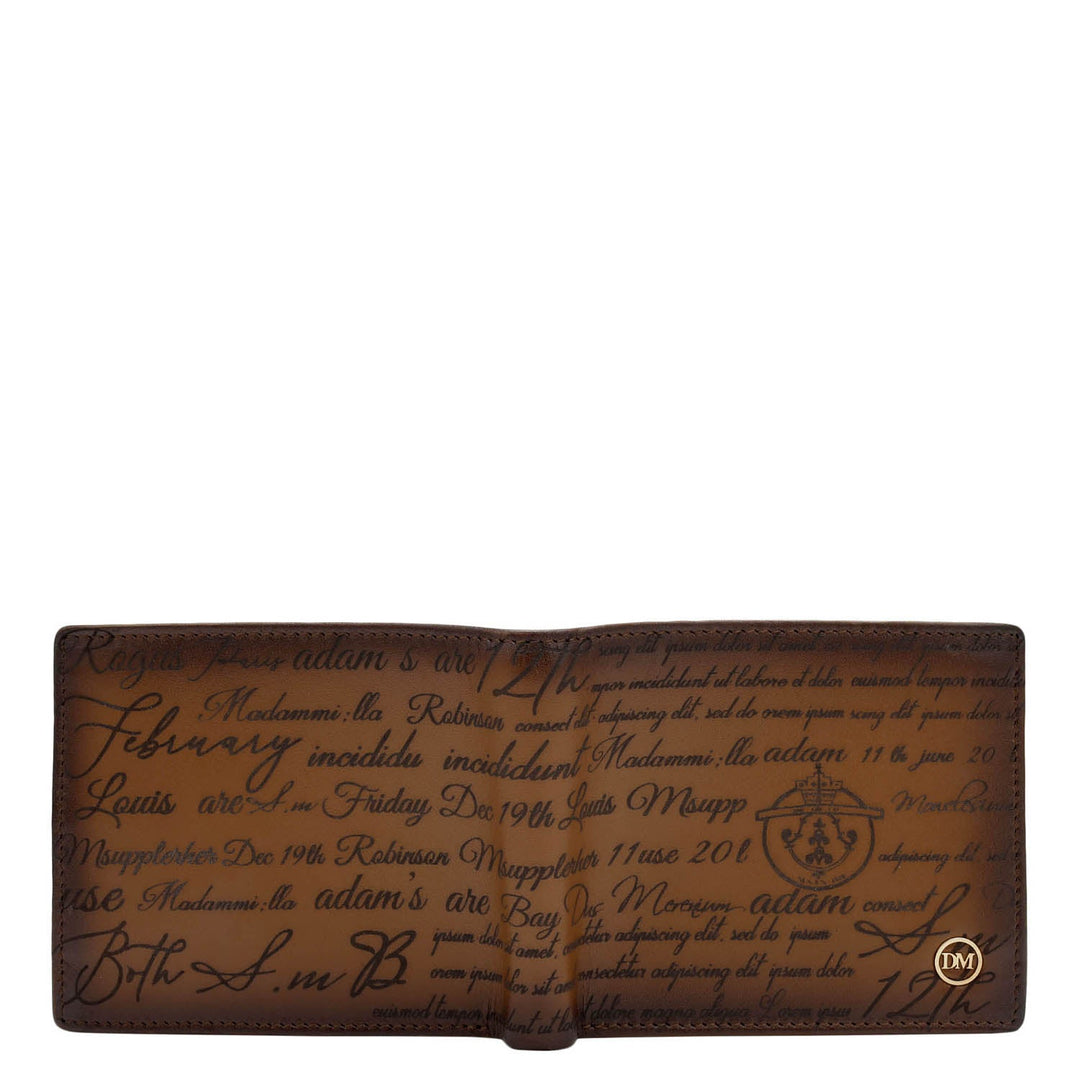 Rogus Paris adam's are 12th scing elit ipsum dolor sit amet
mpor incididunt ut labore et dolor euismod tempor incidi
Madammi:lla Robinson consect adipiscing elit, sed do orem ipsum scing elit ipsum dolor
February incididu incididunt Madammi:lla adam 11 th june 20
Louis are S.m Friday Dec 19th Louis Msupp
Msupplerher Dec 19th Robinson Msupplerher 11use 20 adipiscing elit, sed
use Madammi:lla adam's are Bay Dus Merenum adam consect
Both S.m B ipsum dolor sit amet, adipiscing elit, sed do ipsum S.m
orem ipsum dolor sit am consectetur adipiscing elit ipsum dolor 12th
DM
euismod tempor unt ut labo dolore magna aliqua. Lorem ipsum